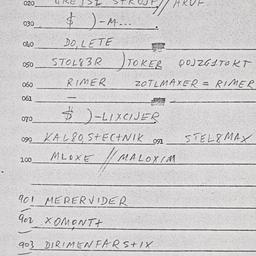 020
030 $ )-M...
040 DO, LETE
050 STOL83R )TOKER
060 RIMER ZOTLMAXER = RIMER
061 —
070 $ )-LIXCIJER
090 KAL80,STECTNIK 091 STEL8MAX
100 MLOXE // MALOXIM
901 MERERVIDER
902 XOMONT+
903 DIRIMENFARS+IX